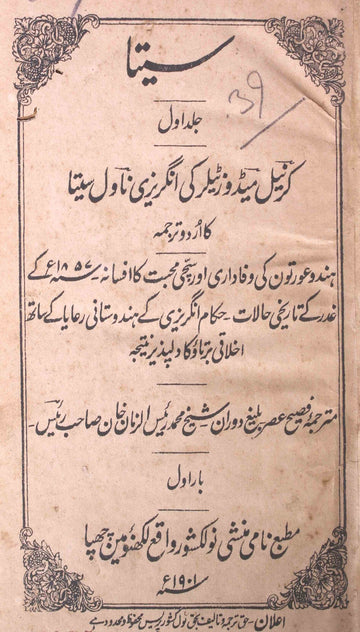 سیتا
39
جلد اول
کرنیل میڈوز ٹیلر کی انگریزی ناول سیتا
کا اُردو ترجمہ
ہندو عورتون کی وفاداری اور سچی محبت کا افسانہ ۔ سنہ ۱۸۵۷ع کے
غدر کے تاریخی حالات ۔ حکام انگریزی کے ہندوستانی رعایا کے ساتھ
اخلاقی برتاؤ کا دلپذیر نتیجہ
مترجمۂ فصیح عصر بلیغ دوران ۔ شیخ محمد رئیس الزمان خان صاحب رئیس ۔
بار اول
مطبع نامی منشی نولکشور واقع لکھنؤ مین چھپا
۱۹۰۱ع
اعلان ۔ حق ترجمہ و تالیف بحق نول کشور پریس محفوظ و محدود ہے